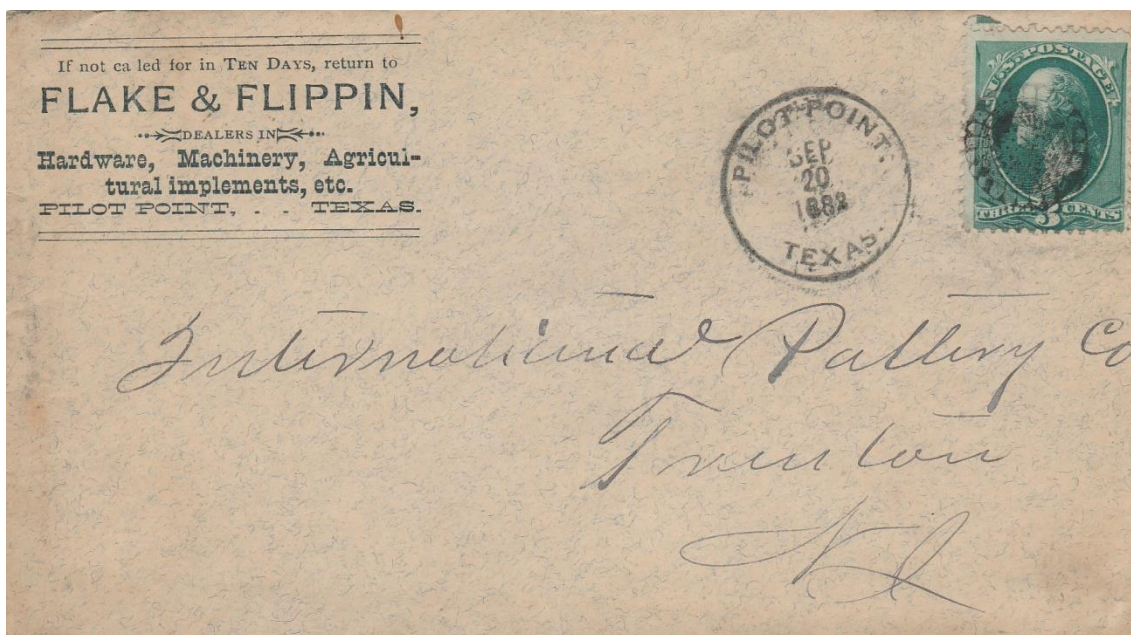 If not ca led for in TEN DAYS, return to
FLAKE & FLIPPIN,
DEALERS IN
Hardware, Machinery, Agricul-
tural implements, etc.
PILOT POINT, . . TEXAS.
PILOT POINT.
SEP
20
1882
TEXAS.
U.S. POSTAGE
THREE 3 CENTS
International Pottery Co
Trenton
NJ